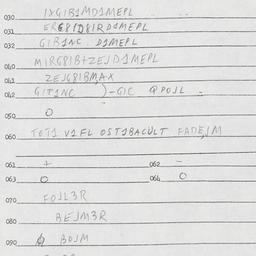 030 IXGIB1MD1MEPL
031 ER681D81RD1MEPL
032 GIB1NC D1MEPL
040 MIRG81B+ZEJD1MEPL
041 ZEJG81BMAX
042 GIT1NC )-GIC @POJL -
050 O
060 TOT1 V1FL OST1BACULT FADEJM
061 + 062 -
063 O 064 O
070 FOJL3R
080 BEJM3R
090 BOJM